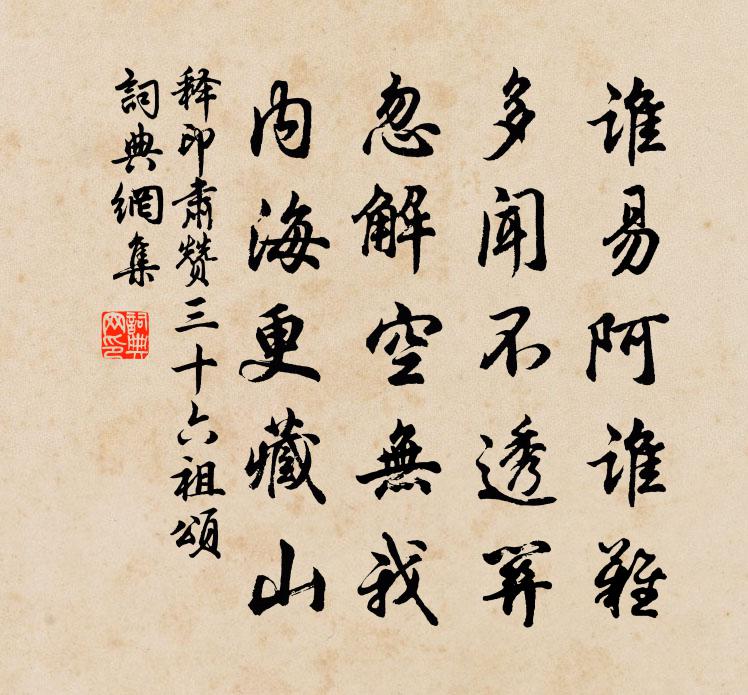 谁易阿谁難
多聞不透關
忽解空無我
内海更藏山
释印肅贊三十六祖頌
詞典網集
詞典网印